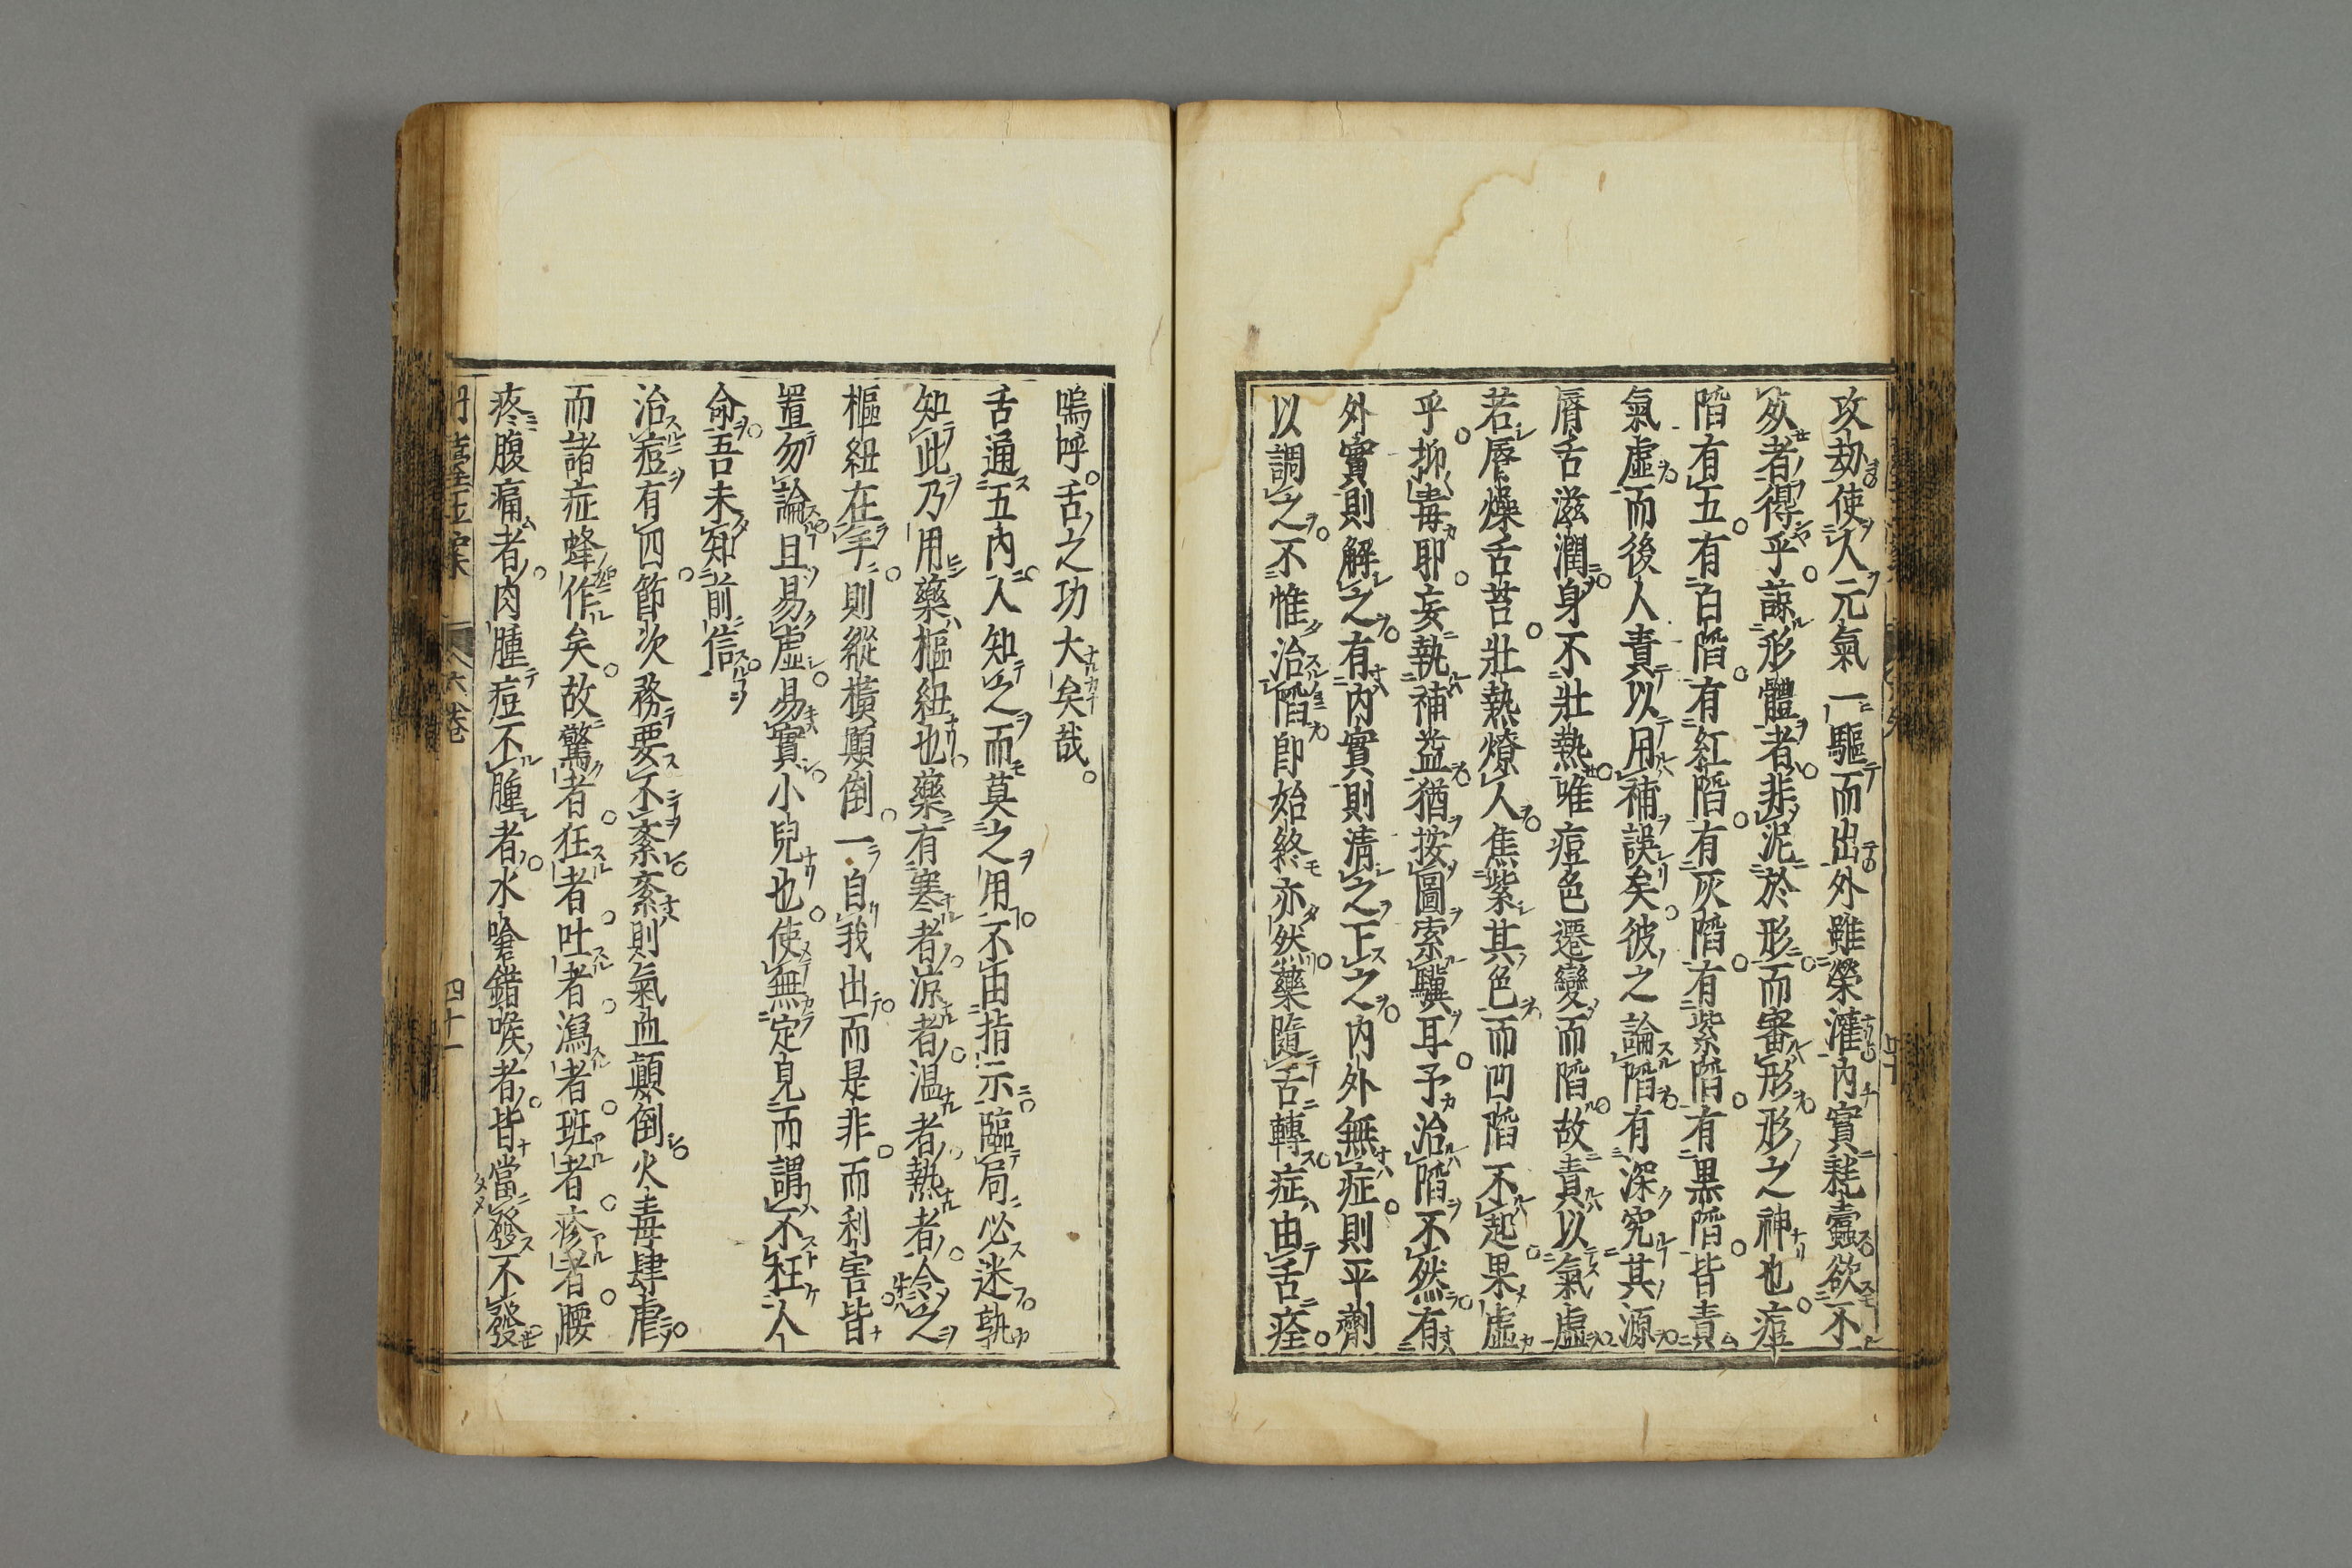 攻劫使人元氣一驅而出外雖榮灌内實耗蠹欲不
攽者得乎諒形體者非泥於形而審形形之神也痘
陷有五有白陷有紅陷有灰陷有紫陷有黒陷皆責
氣虛而後人責以用補誤矣彼之論陷有深究其源
唇舌滋潤身不壯熱唯痘色遷變而陷故責以氣虛
若唇燥舌苔壯熱燎人焦紫其色而凹陷不起果虛
乎抑毒耶妄執補益猶按圖索驥耳予治陷不然有
外實則解之有内實則清之下之内外無症則平劑
以調之不惟治陷即始終亦然藥隨舌轉症由舌痊
嗚呼舌之功大矣哉
舌通五内人知之而莫之用不由指示臨局必迷孰
知此乃用藥樞紐也藥有寒者凉者温者熱者令之
樞紐在手則縱橫顛倒一自我出而是非而利害皆
置勿論且易虛易實小兒也使無定見而謂不枉人
命吾未知前信
治痘有四節次務要不紊紊則氣血顛倒火毒肆虐
而諸症蜂作矣故驚者狂者吐者瀉者班者疹者腰
疼腹痛者肉腫痘不腫者水嗆錯喉者皆當發不發
六巻
四十一